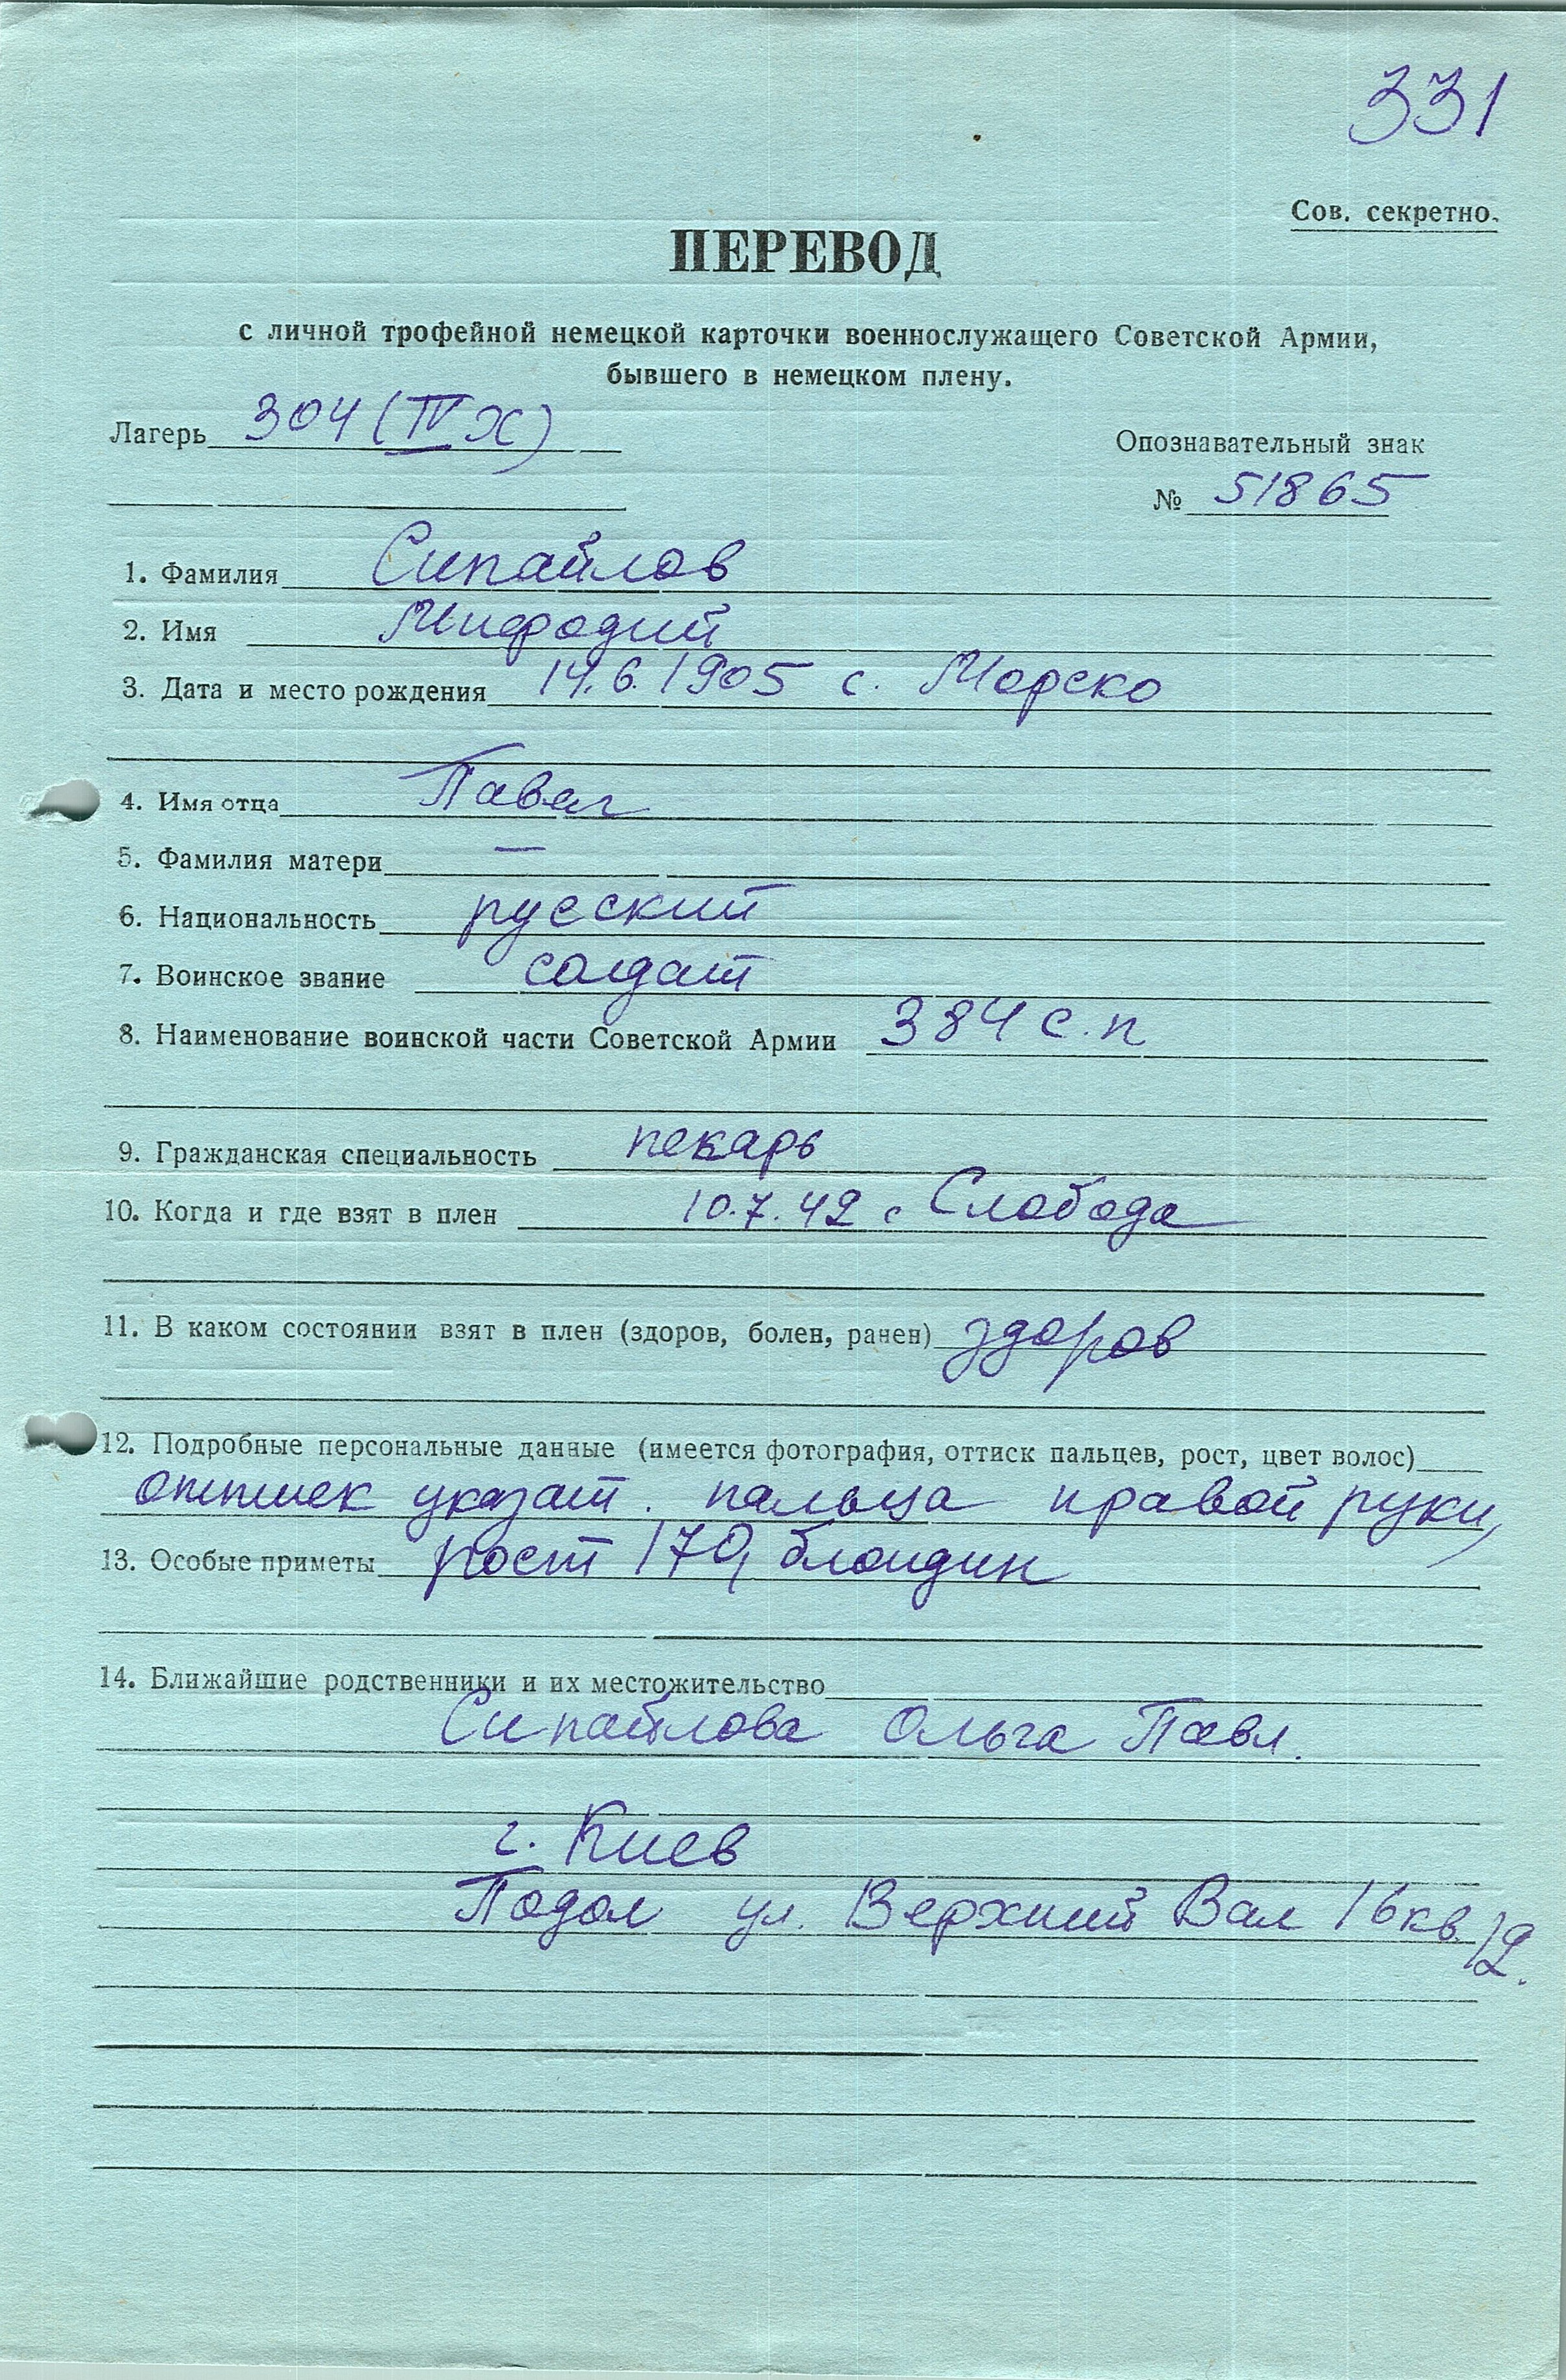 331
Сов. секретно.
ПЕРЕВОД
с личной трофейной немецкой карточки военнослужащего Советской Армии,
бывшего в немецком плену.
Лагерь 304 (IV Н)
Опознавательный знак
№ 51865
1. Фамилия Сипайлов
2. Имя Мифодий
3. Дата и место рождения 14.6.1905 с. Морско
4. Имя отца Павел
5. Фамилия матери —
6. Национальность русский
7. Воинское звание солдат
8. Наименование воинской части Советской Армии 384 с.п
9. Гражданская специальность пекарь
10. Когда и где взят в плен 10.7.42 с Слобода
11. В каком состоянии взят в плен (здоров, болен, ранен) здоров
12. Подробные персональные данные (имеется фотография, оттиск пальцев, рост, цвет волос)
оттиск указат. пальца правой руки,
13. Особые приметы рост 170, блондин
14. Ближайшие родственники и их местожительство
Сипайлова Ольга Павл.
г. Киев
Подол ул. Верхний Вал 16 кв. 12.